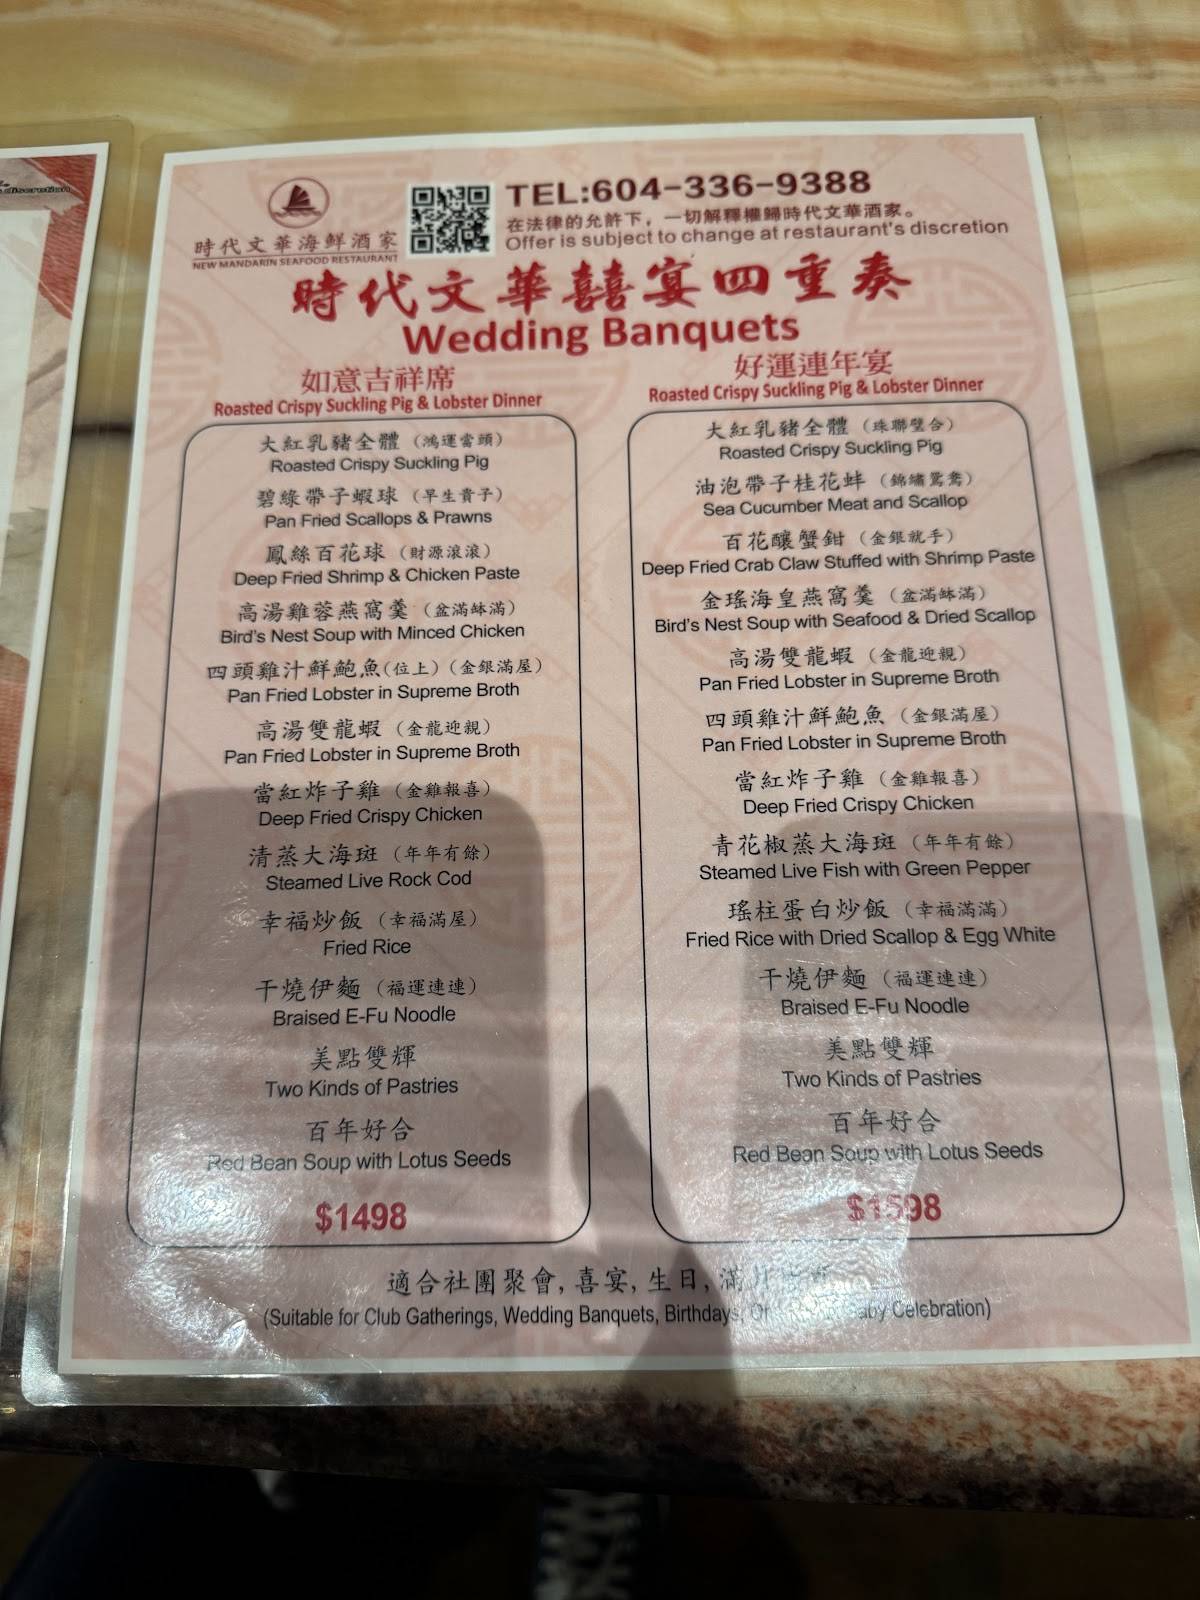 discretion
時代文華海鮮酒家
NEW MANDARIN SEAFOOD RESTAURANT
TEL:604-336-9388
在法律的允許下，一切解釋權歸時代文華酒家。
Offer is subject to change at restaurant's discretion
時代文華囍宴四重奏
Wedding Banquets
如意吉祥席
Roasted Crispy Suckling Pig & Lobster Dinner
大紅乳豬全體（鴻運當頭）
Roasted Crispy Suckling Pig
碧綠帶子蝦球（早生貴子）
Pan Fried Scallops & Prawns
鳳絲百花球（財源滾滾）
Deep Fried Shrimp & Chicken Paste
高湯雞蓉燕窩羹（盆滿缽滿）
Bird's Nest Soup with Minced Chicken
四頭雞汁鮮鮑魚(位上)（金銀滿屋）
Pan Fried Lobster in Supreme Broth
高湯雙龍蝦（金龍迎親）
Pan Fried Lobster in Supreme Broth
當紅炸子雞（金雞報喜）
Deep Fried Crispy Chicken
清蒸大海斑（年年有餘）
Steamed Live Rock Cod
幸福炒飯（幸福滿屋）
Fried Rice
干燒伊麵（福運連連）
Braised E-Fu Noodle
美點雙輝
Two Kinds of Pastries
百年好合
Red Bean Soup with Lotus Seeds
$1498
好運連年宴
Roasted Crispy Suckling Pig & Lobster Dinner
大紅乳豬全體（珠聯璧合）
Roasted Crispy Suckling Pig
油泡帶子桂花蚌（錦繡鴛鴦）
Sea Cucumber Meat and Scallop
百花釀蟹鉗（金銀就手）
Deep Fried Crab Claw Stuffed with Shrimp Paste
金瑤海皇燕窩羹（盆滿缽滿）
Bird's Nest Soup with Seafood & Dried Scallop
高湯雙龍蝦（金龍迎親）
Pan Fried Lobster in Supreme Broth
四頭雞汁鮮鮑魚（金銀滿屋）
Pan Fried Lobster in Supreme Broth
當紅炸子雞（金雞報喜）
Deep Fried Crispy Chicken
青花椒蒸大海斑（年年有餘）
Steamed Live Fish with Green Pepper
瑤柱蛋白炒飯（幸福滿滿）
Fried Rice with Dried Scallop & Egg White
干燒伊麵（福運連連）
Braised E-Fu Noodle
美點雙輝
Two Kinds of Pastries
百年好合
Red Bean Soup with Lotus Seeds
$1598
適合社團聚會, 喜宴, 生日, 滿
(Suitable for Club Gatherings, Wedding Banquets, Birthdays, Baby Celebration)